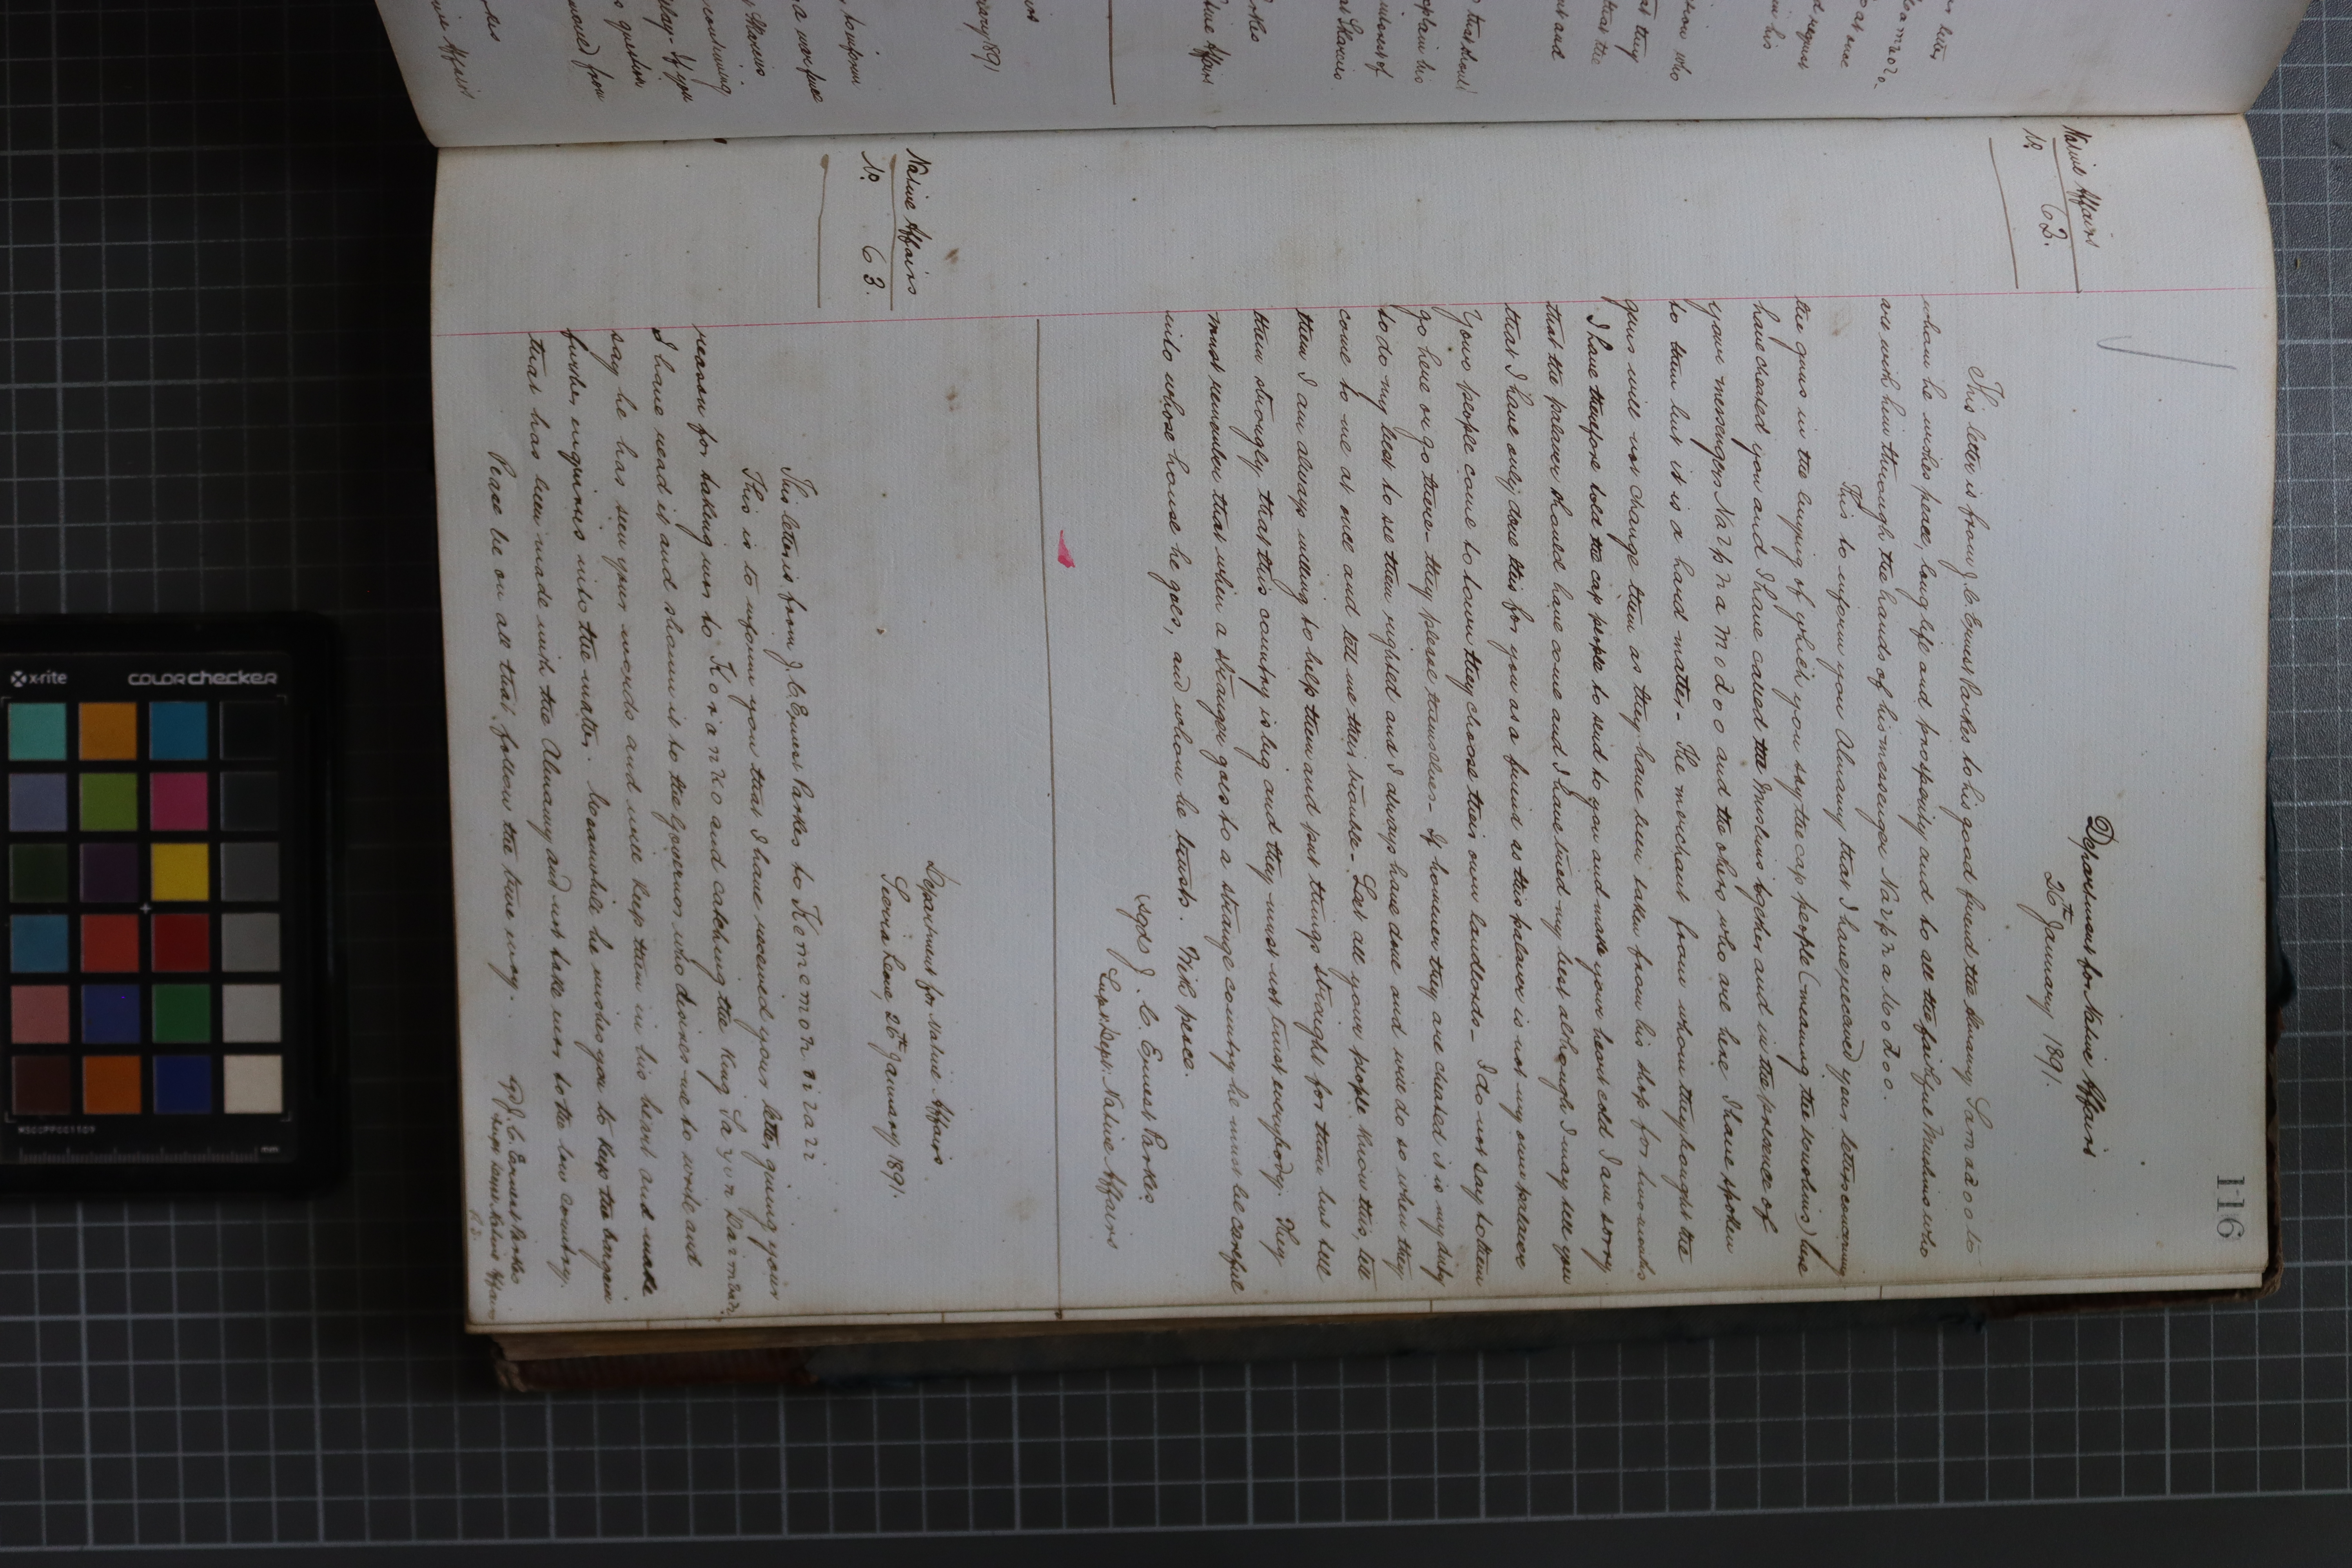 116
Native Affairs
No. 62.
Department for Native Affairs
26th January 1891.
This letter is from J. C. Ernest Parkes to his good friend the Almamy Samadoo to
whom he wishes peace, long life and prosperity and to all the faithful Muslims who
are with him through the hands of his messenger
This to inform you Almamy that I have received your letter concerning
the guns in the buying of which you say the cap people (meaning the ) here
have cheated you and I have called the Muslims together and in the presence of
your messengers and the others who are here I have spoken
to them but it is a hard matter - The merchant from whom they bought the
guns will not change them as they have been taken from his shop for two weeks
I have therefore told the cap people to send to you and make your heart cold I am sorry
that the palaver should have come and I have tried my best although I may tell you
that I have only done this for you as a friend as this palaver is not my own palaver
Your people come to town they choose their own landlords - I do not say to them
go here or go there - they please themselves - If however they are cheated it is my duty
to do my best to see them righted and I always have done and will do so when they
come to me at once and tell me their trouble - Let all your people know this, tell
them I am always willing to help them and put things straight for them but tell
them strongly that this country is big and they must not trust everybody. They
must remember that when a stranger goes to a strange country he must be careful
into whose house he goes, and whom he trusts. With peace.
(sgd) J. C. Ernest Parkes
Supt. Dept. Native Affairs
Native Affairs
No. 63.
Department for Native Affairs
Sierra Leone, 26th January 1891.
This letter is from J. C. Ernest Parkes to
This is to inform you that I have received your letter giving your
reason for taking war to Koranko and catching the King
I have read it and shown it to the Governor who desires me to write and
say he has seen your words and will keep them in his heart and make
further enquiries into the matter. Meanwhile he wishes you to keep the bargain
that has been made with the Almamy and not take war to the low country.
Peace be on all that follow the true way.
sgd J. C. Ernest Parkes
Supt Native Affairs